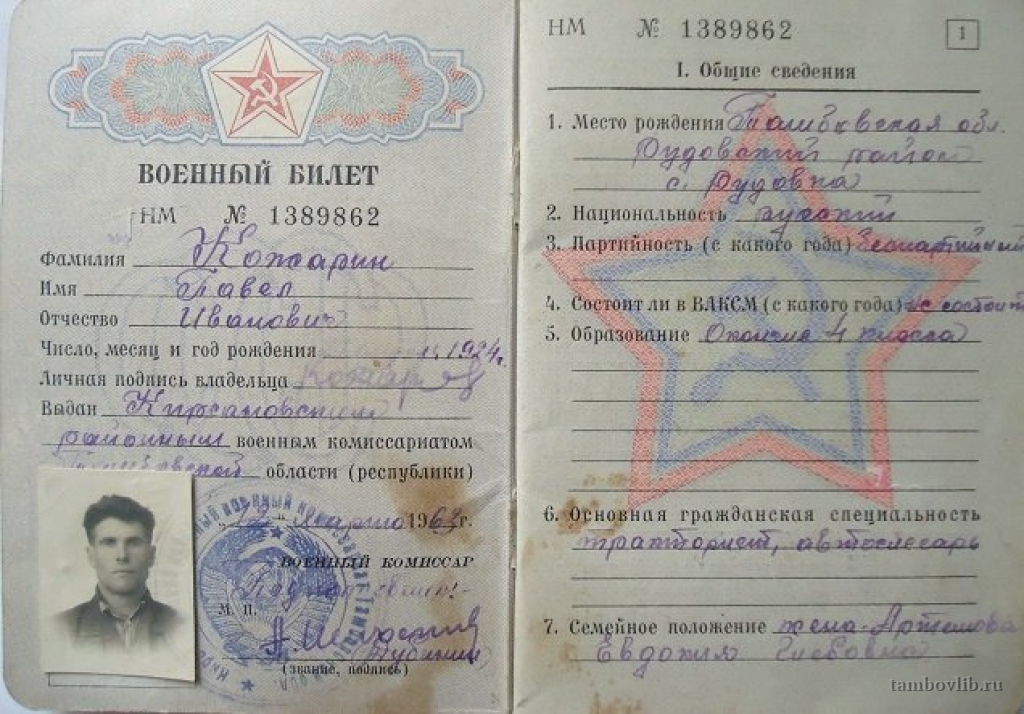 ВОЕННЫЙ БИЛЕТ
НМ № 1389862
Фамилия Кожарин
Имя Павел
Отчество Иванович
Число, месяц и год рождения 1924г.
Личная подпись владельца
Выдан Кирсановским
районным военным комиссариатом
Тамбовской области (республики)
"12" марта 1964г.
ВОЕННЫЙ КОМИССАР
М. П.
(звание, подпись)
НМ № 1389862
1
I. Общие сведения
1. Место рождения Тамбовская обл.
Рудовский район
с. Рудовка
2. Национальность русский
3. Партийность (с какого года) беспартийный
4. Состоит ли в ВЛКСМ (с какого года) не состоит
5. Образование Окончил 4 класса
6. Основная гражданская специальность
тракторист, автослесарь
7. Семейное положение жена-Артемова
Евдокия Глебовна
tambovlib.ru